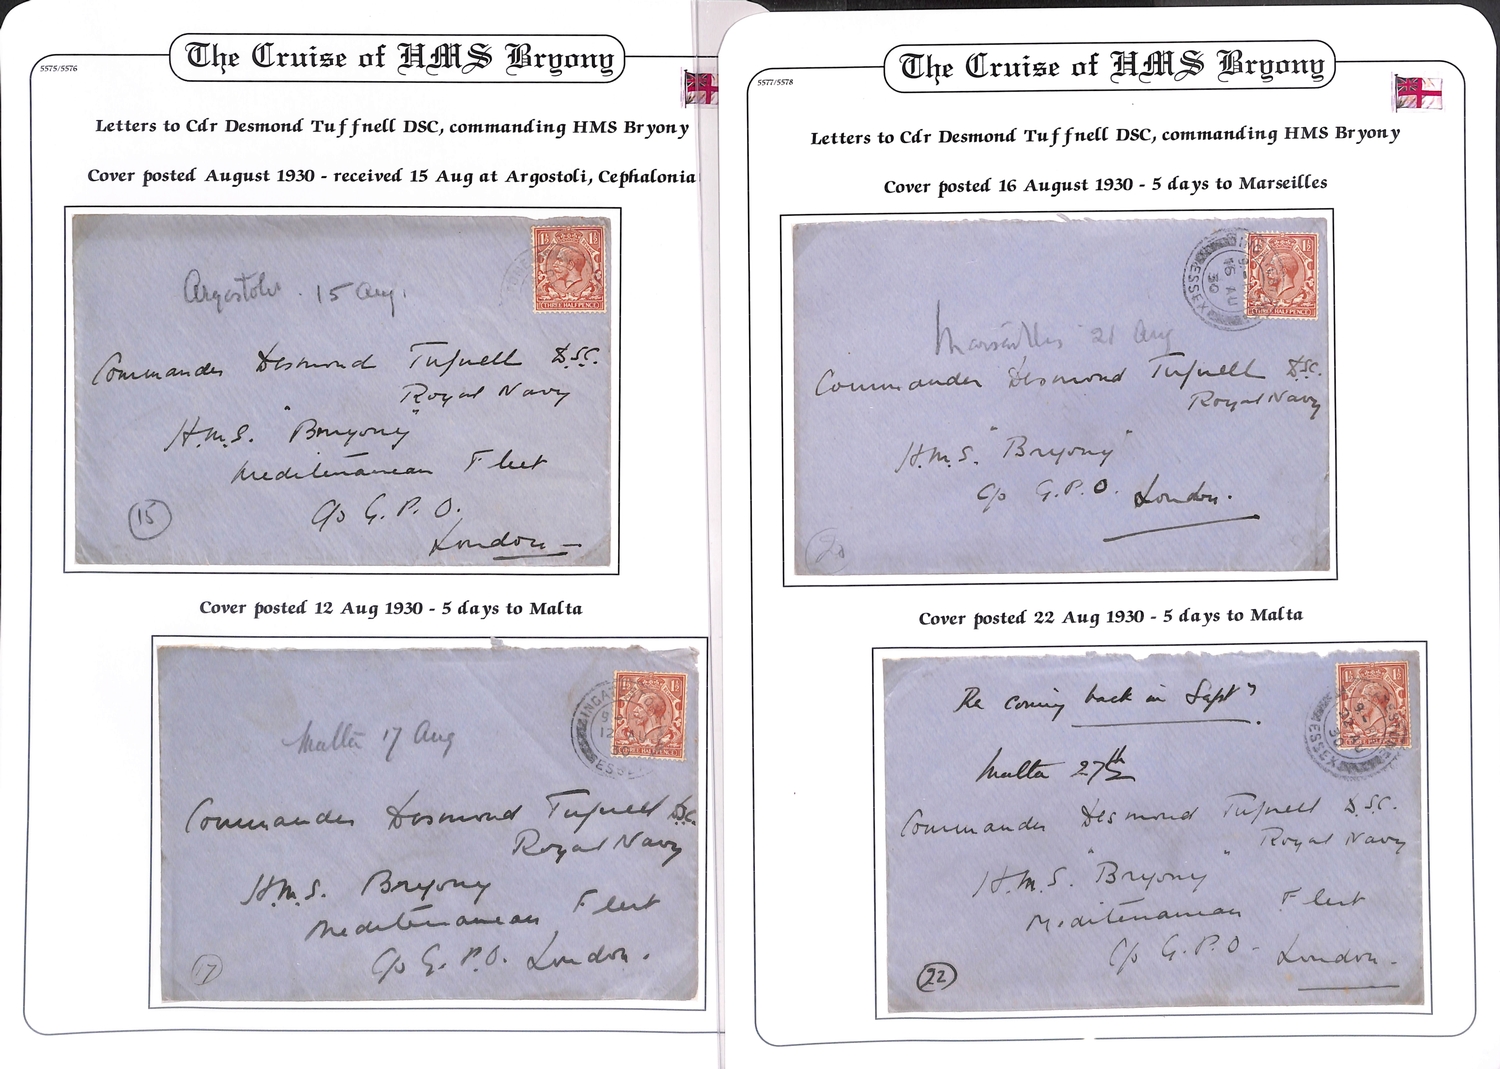 5575/5576
The Cruise of HMS Bryony
Letters to Cdr Desmond Tuffnell DSC, commanding HMS Bryony
Cover posted August 1930 - received 15 Aug at Argostoli, Cephalonia
1½ 1½
THREE HALFPENCE
Argostoli . 15 Aug.
Commander Desmond Tufnell D.S.C.
Royal Navy
H.M.S. "Bryony"
Mediterranean Fleet
c/o G.P.O.
London
15
Cover posted 12 Aug 1930 - 5 days to Malta
1½ 1½
THREE HALFPENCE
12 AU
ESSEX
Malta 17 Aug
Commander Desmond Tufnell D.S.C.
Royal Navy
H.M.S. Bryony
Mediterranean Fleet
c/o G.P.O. London.
17
5577/5578
The Cruise of HMS Bryony
Letters to Cdr Desmond Tuffnell DSC, commanding HMS Bryony
Cover posted 16 August 1930 - 5 days to Marseilles
1½
THREE HALFPENCE
16 AU
30
ESSEX
Marseilles 21 Aug
Commander Desmond Tufnell D.S.C.
Royal Navy
H.M.S. "Bryony"
c/o G.P.O. London.
20
Cover posted 22 Aug 1930 - 5 days to Malta
1½ 1½
22 AU
30
ESSEX
Re coming back in Sept?
Malta 27th
Commander Desmond Tufnell D.S.C.
Royal Navy
H.M.S. "Bryony"
Mediterranean Fleet
c/o G.P.O - London -
22